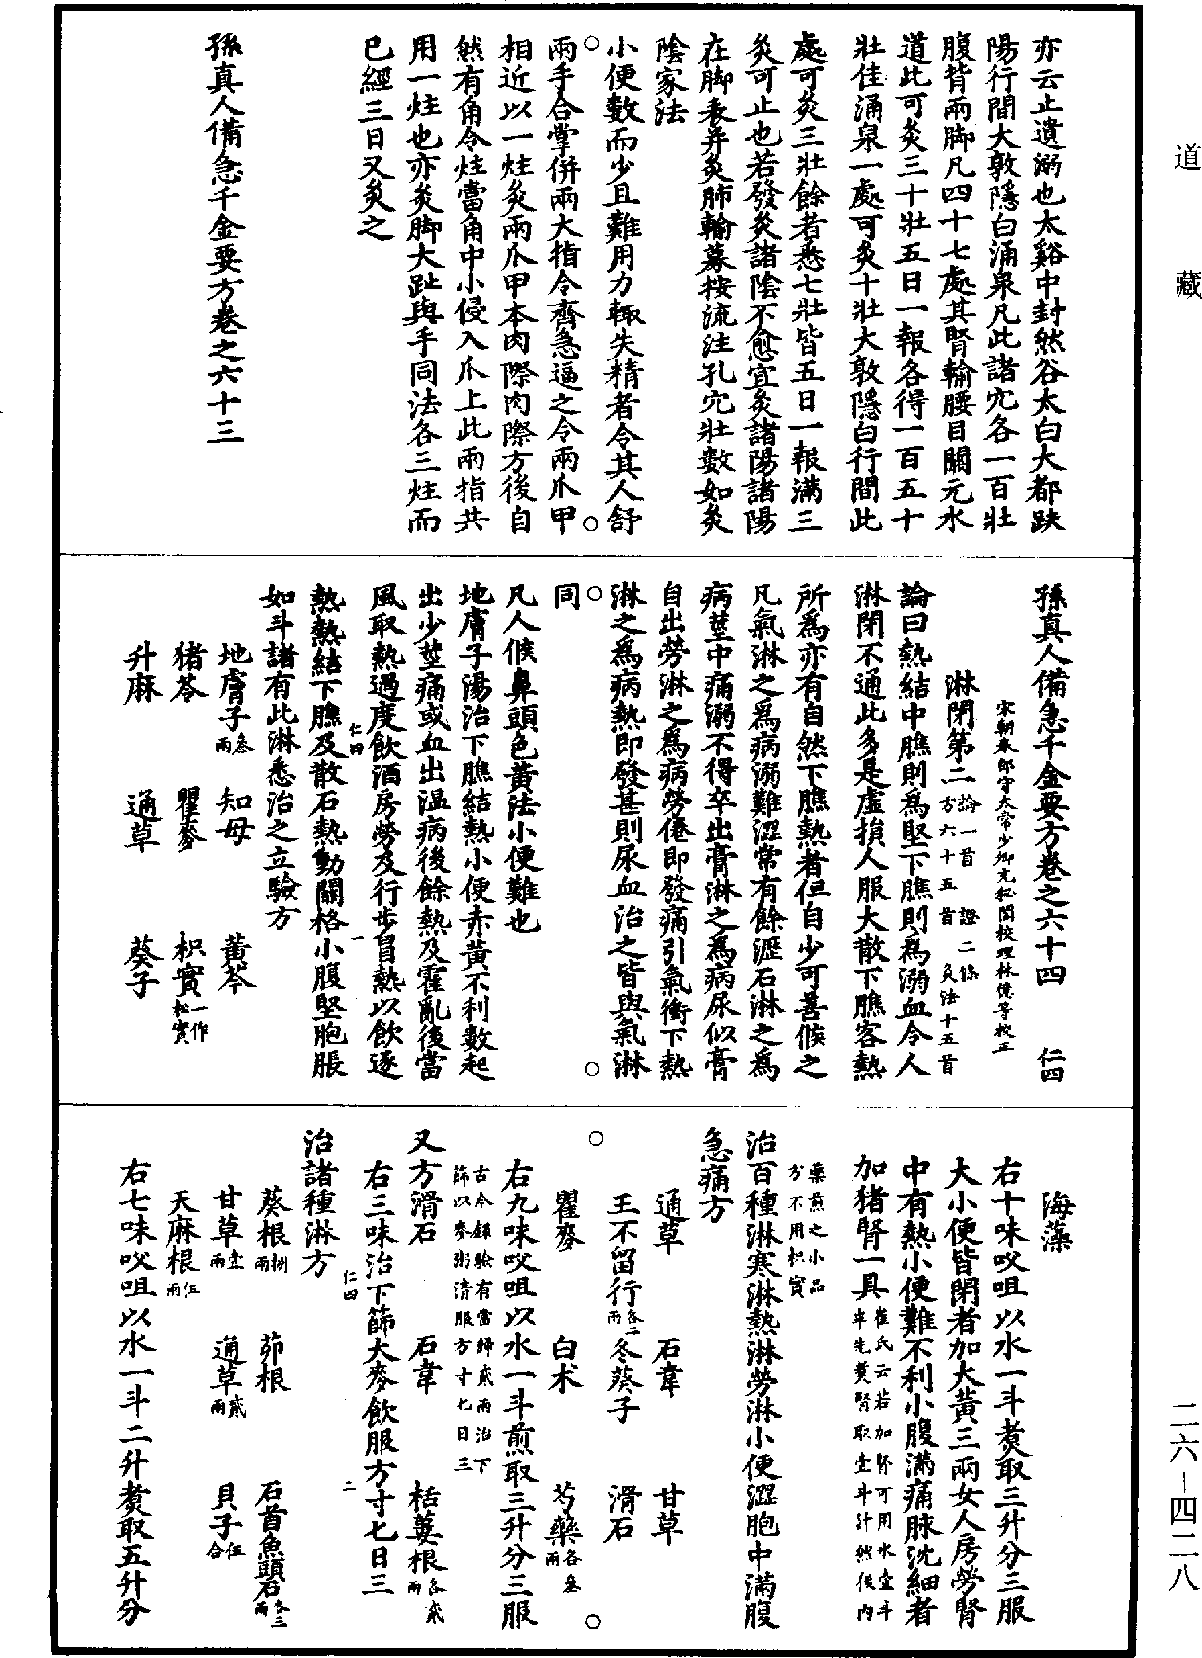 道藏
亦云止遺溺也太谿中封然谷太白大都趺
陽行間大敦隱白涌泉凡此諸穴各一百壯
腹背兩脚凡四十七處其腎輸腰目關元水
道此可灸三十壯五日一報各得一百五十
壯佳涌泉一處可灸十壯大敦隱白行間此
處可灸三壯餘者悉七壯皆五日一報滿三
灸可止也若發灸諸陰不愈宜灸諸陽諸陽
在脚表并灸肺輸募按流注孔穴壯數如灸
陰家法
小便數而少且難用力輒失精者令其人舒
兩手合掌併兩大指令齊急逼之令兩爪甲
相近以一炷灸兩爪甲本肉際肉際方後自
然有角令炷當角中小侵入爪上此兩指共
用一炷也亦灸脚大趾與手同法各三炷而
已經三日又灸之
孫真人備急千金要方卷之六十三
孫真人備急千金要方卷之六十四 仁四
宋朝奉郎守太常少卿充秘閣校理林億等校正
淋閉第二論一首 證二條 方六十五首 灸法十五首
論曰熱結中膲則為堅下膲則為溺血令人
淋閉不通此多是虛損人服大散下膲客熱
所為亦有自然下膲熱者但自少可善候之
凡氣淋之為病溺難澀常有餘瀝石淋之為
病莖中痛溺不得卒出膏淋之為病尿似膏
自出勞淋之為病勞倦即發痛引氣衝下熱
淋之為病熱即發甚則尿血治之皆與氣淋
同
凡人候鼻頭色黃法小便難也
地膚子湯治下膲結熱小便赤黃不利數起
出少莖痛或血出溫病後餘熱及霍亂後當
風取熱過度飲酒房勞及行步冒熱以飲逐
仁四 一
熱熱結下膲及散石熱動關格小腹堅胞脹
如斗諸有此淋悉治之立驗方
地膚子叁兩 知母 黃芩
猪苓 瞿麥 枳實一作松實
升麻 通草 葵子
海藻
右十味㕮咀以水一斗煑取三升分三服
大小便皆閉者加大黃三兩女人房勞腎
中有熱小便難不利小腹滿痛脉沈細者
加猪腎一具崔氏云若加腎可用水壹斗半先煑腎取壹斗汁然後內
藥煎之小品方不用枳實
治百種淋寒淋熱淋勞淋小便澀胞中滿腹
急痛方
通草 石韋 甘草
王不留行各二兩 冬葵子 滑石
瞿麥 白术 芍藥各叁兩
右九味㕮咀以水一斗煎取三升分三服
古今錄驗有當歸貳兩治下篩以麥粥清服方寸匕日三
又方滑石 石韋 栝蔞根各貳兩
右三味治下篩大麥飲服方寸匕日三
仁四 二
治諸種淋方
葵根捌兩 茆根 石首魚頭石各三兩
甘草壹兩 通草貳兩 貝子伍合
天麻根伍兩
右七味㕮咀以水一斗二升煑取五升分
二六—四二八